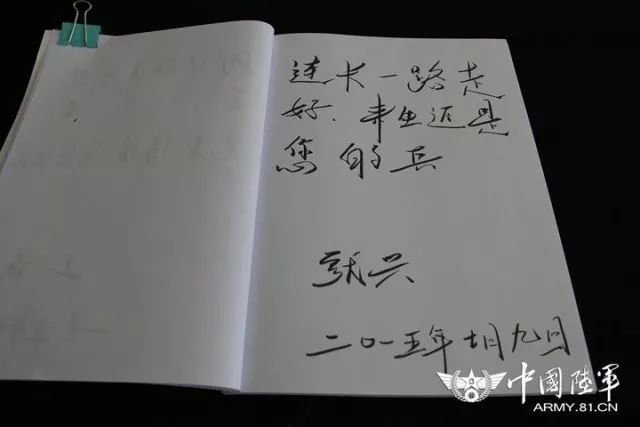 连长一路走
好.来生还是
您的兵
张兴
二〇一五年七月九日
中國陸軍
ARMY.81.CN